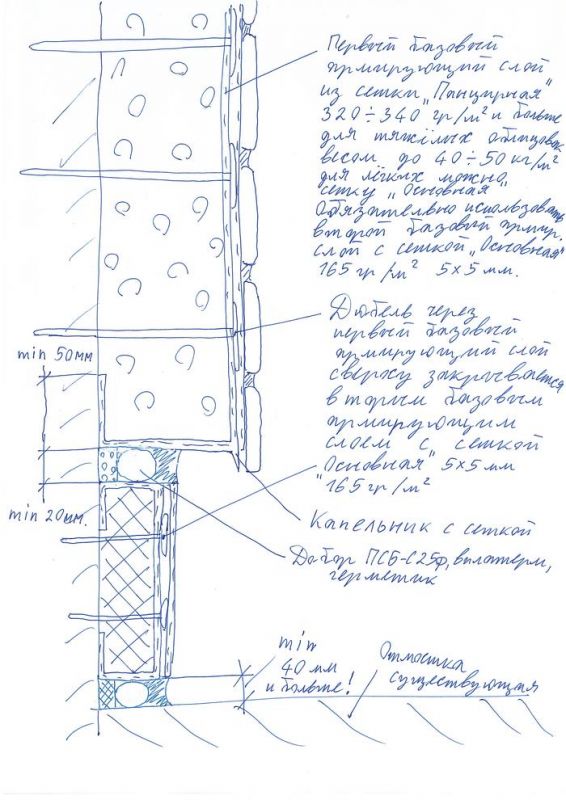 Первый базовый
армирующий слой
из сетки „Панцирная"
320÷340 гр/м² и больше
для тяжёлых облицовок
весом до 40÷50 кг/м²
для лёгких можно
сетку „Основная"
Обязательно использовать
второй базовый армир.
слой с сеткой „Основная"
165 гр/м² 5х5 мм.
Дюбель через
первый базовый
армирующий слой
сверху закрывается
вторым базовым
армирующим
слоем с сеткой
„Основная" 5х5 мм
165 гр/м²
min 50мм
min 20мм.
Капельник с сеткой
Добор ПСБ-С25ф, вилатерм,
герметик
min
40 мм
и больше!
Отмостка
существующая